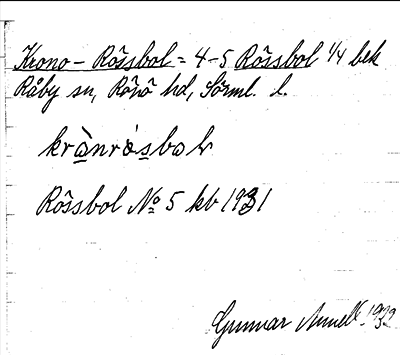 Krono-Rôssbol = 4-5 Rôssbol 1/4 bek
Råby sn, Rönö hd, Sörml. l.
krànròsbol
Rôssbol No 5 kb 1931
Gunnar 1932